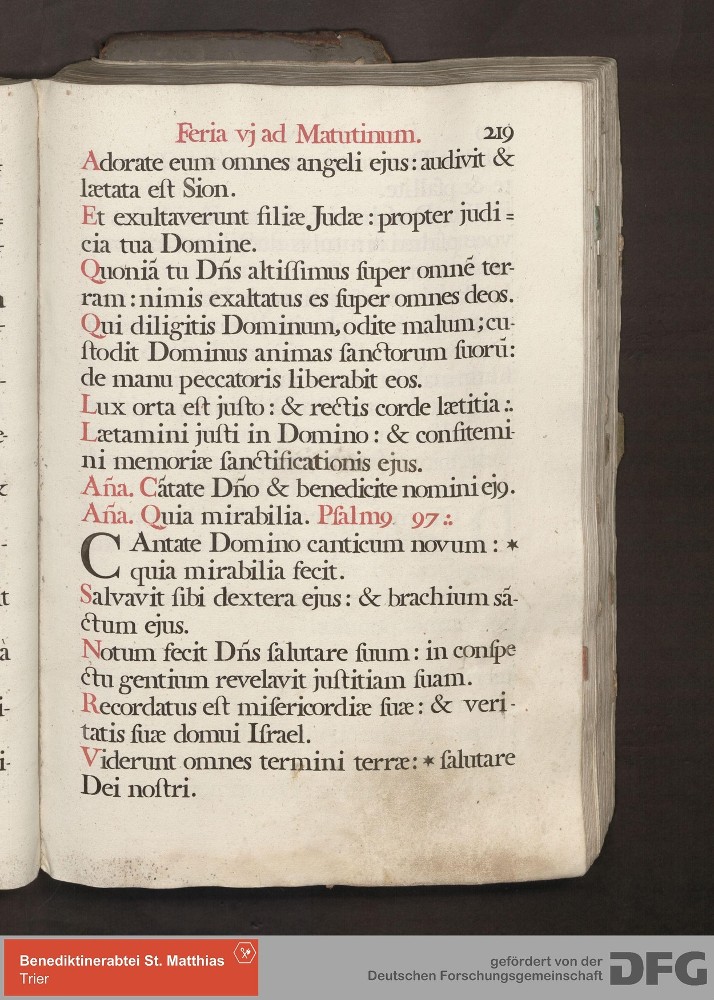 Feria vj ad Matutinum. 219
Adorate eum omnes angeli ejus: audivit &
lætata eſt Sion.
Et exultaverunt filiæ Judæ: propter judi=
cia tua Domine.
Quoniã tu Dñs altiſſimus ſuper omnẽ ter-
ram: nimis exaltatus es ſuper omnes deos.
Qui diligitis Dominum, odite malum; cu-
ſtodit Dominus animas ſanctorum ſuorũ:
de manu peccatoris liberabit eos.
Lux orta eſt juſto: & rectis corde lætitia:.
Lætamini juſti in Domino: & confitemi-
ni memoriæ ſanctificationis ejus.
Aña. Cãtate Dño & benedicite nomini ej9.
Aña. Quia mirabilia. Pſalm9 97:.
CAntate Domino canticum novum: *
quia mirabilia fecit.
Salvavit ſibi dextera ejus: & brachium sã-
ctum ejus.
Notum fecit Dñs ſalutare ſuum: in conſpe
ctu gentium revelavit juſtitiam ſuam.
Recordatus eſt miſericordiæ ſuæ: & veri-
tatis ſuæ domui Iſrael.
Viderunt omnes termini terræ: * ſalutare
Dei noſtri.
Benediktinerabtei St. Matthias
Trier
gefördert von der
Deutschen Forschungsgemeinschaft
DFG